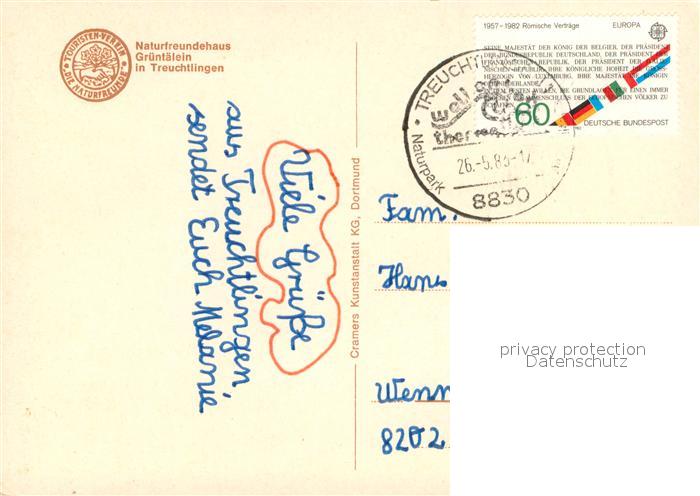 TOURISTEN-VEREIN
"DIE NATURFREUNDE"
Naturfreundehaus
Grüntälein
in Treuchtlingen
Viele Grüße
aus Treuchtlingen
sendet Euch Melanie
Cramers Kunstanstalt KG, Dortmund
1957-1982 Römische Verträge EUROPA
SEINE MAJESTÄT DER KÖNIG DER BELGIER, DER PRÄSIDENT
DER BUNDESREPUBLIK DEUTSCHLAND, DER PRÄSIDENT
FRANZÖSISCHEN REPUBLIK, DER PRÄSIDENT
REPUBLIK, IHRE KÖNIGLICHE HOHEIT
HERZOGIN VON LUXEMBURG, IHRE MAJESTÄT KÖNIGIN
NIEDERLANDE
FESTEN WILLEN, DIE GRUNDLAGEN FÜR EINEN IMMER
DER EUROPÄISCHEN VÖLKER ZU
60
DEUTSCHE BUNDESPOST
TREUCHT
Naturpark
26.-5.83-17
8830
Fam.
Hans
Wenn
8202
privacy protection
Datenschutz